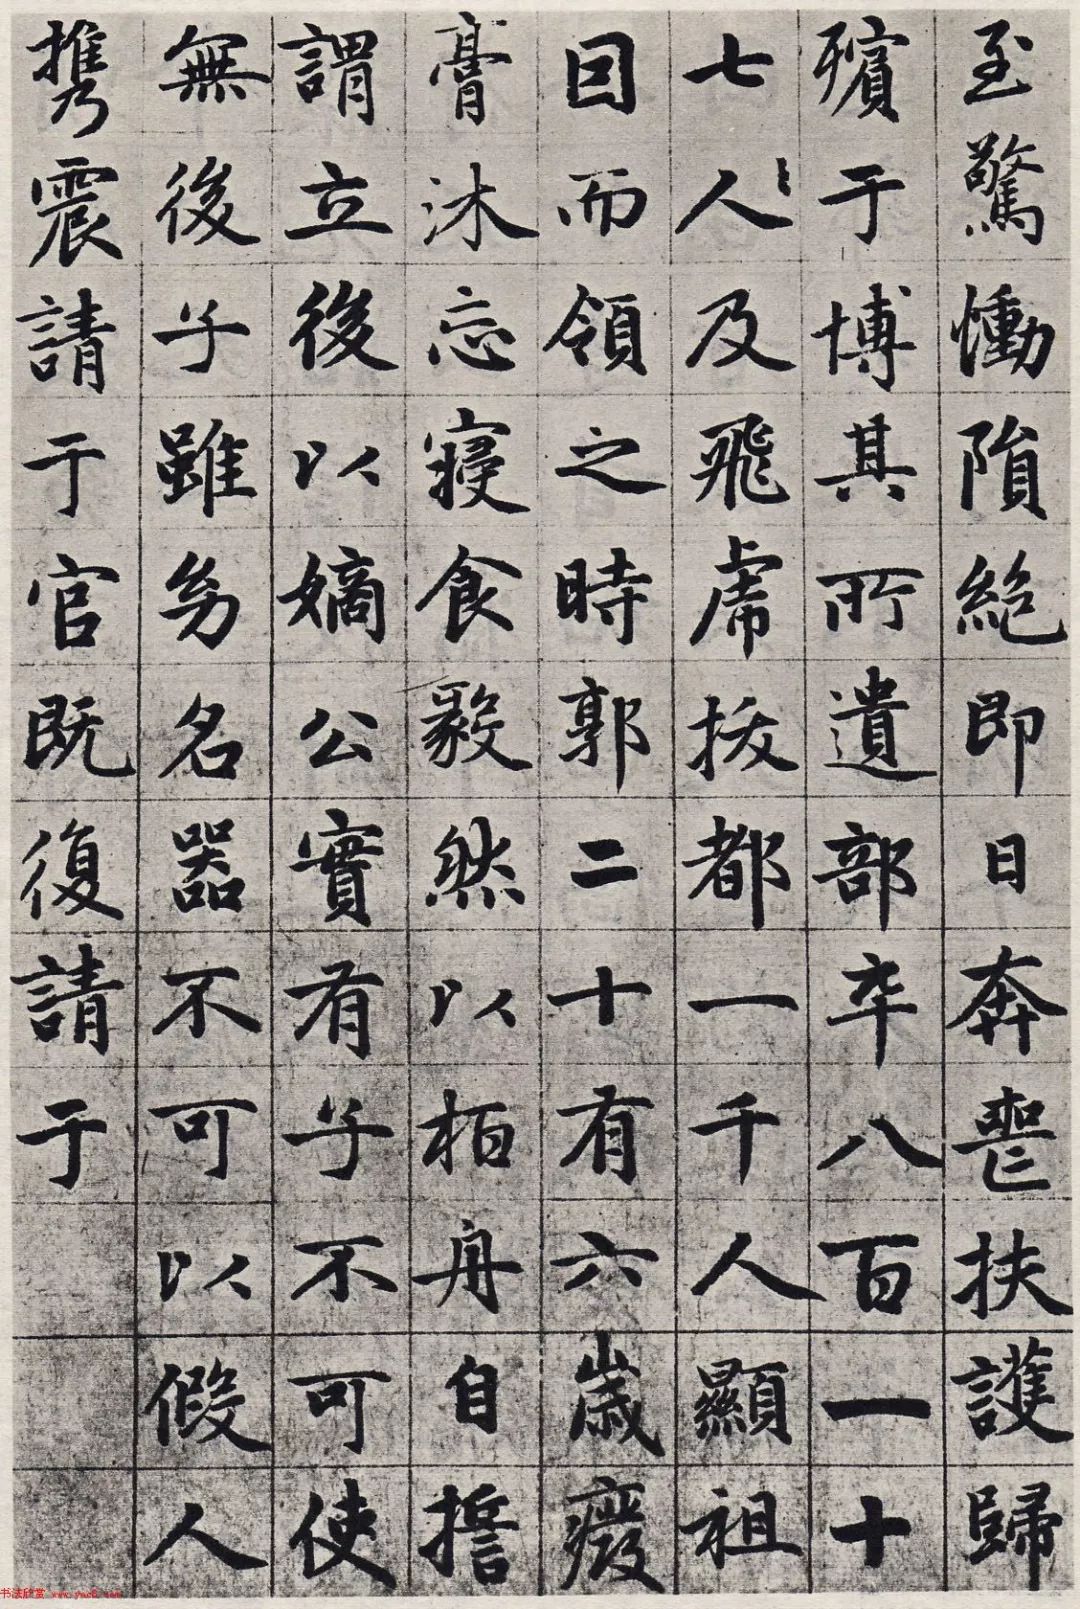 至驚慟隕絕即日奔喪扶護歸
殯于博其所遺部卒八百一十
七人及飛虎撥都一千人顯祖
因而領之時郭二十有六歲癈
膏沐忘寢食毅然以栢舟自誓
謂立後以嫡公實有子不可使
無後子雖幼名器不可以假人
攜震請于官既復請于
书法欣赏 www.yac8.com